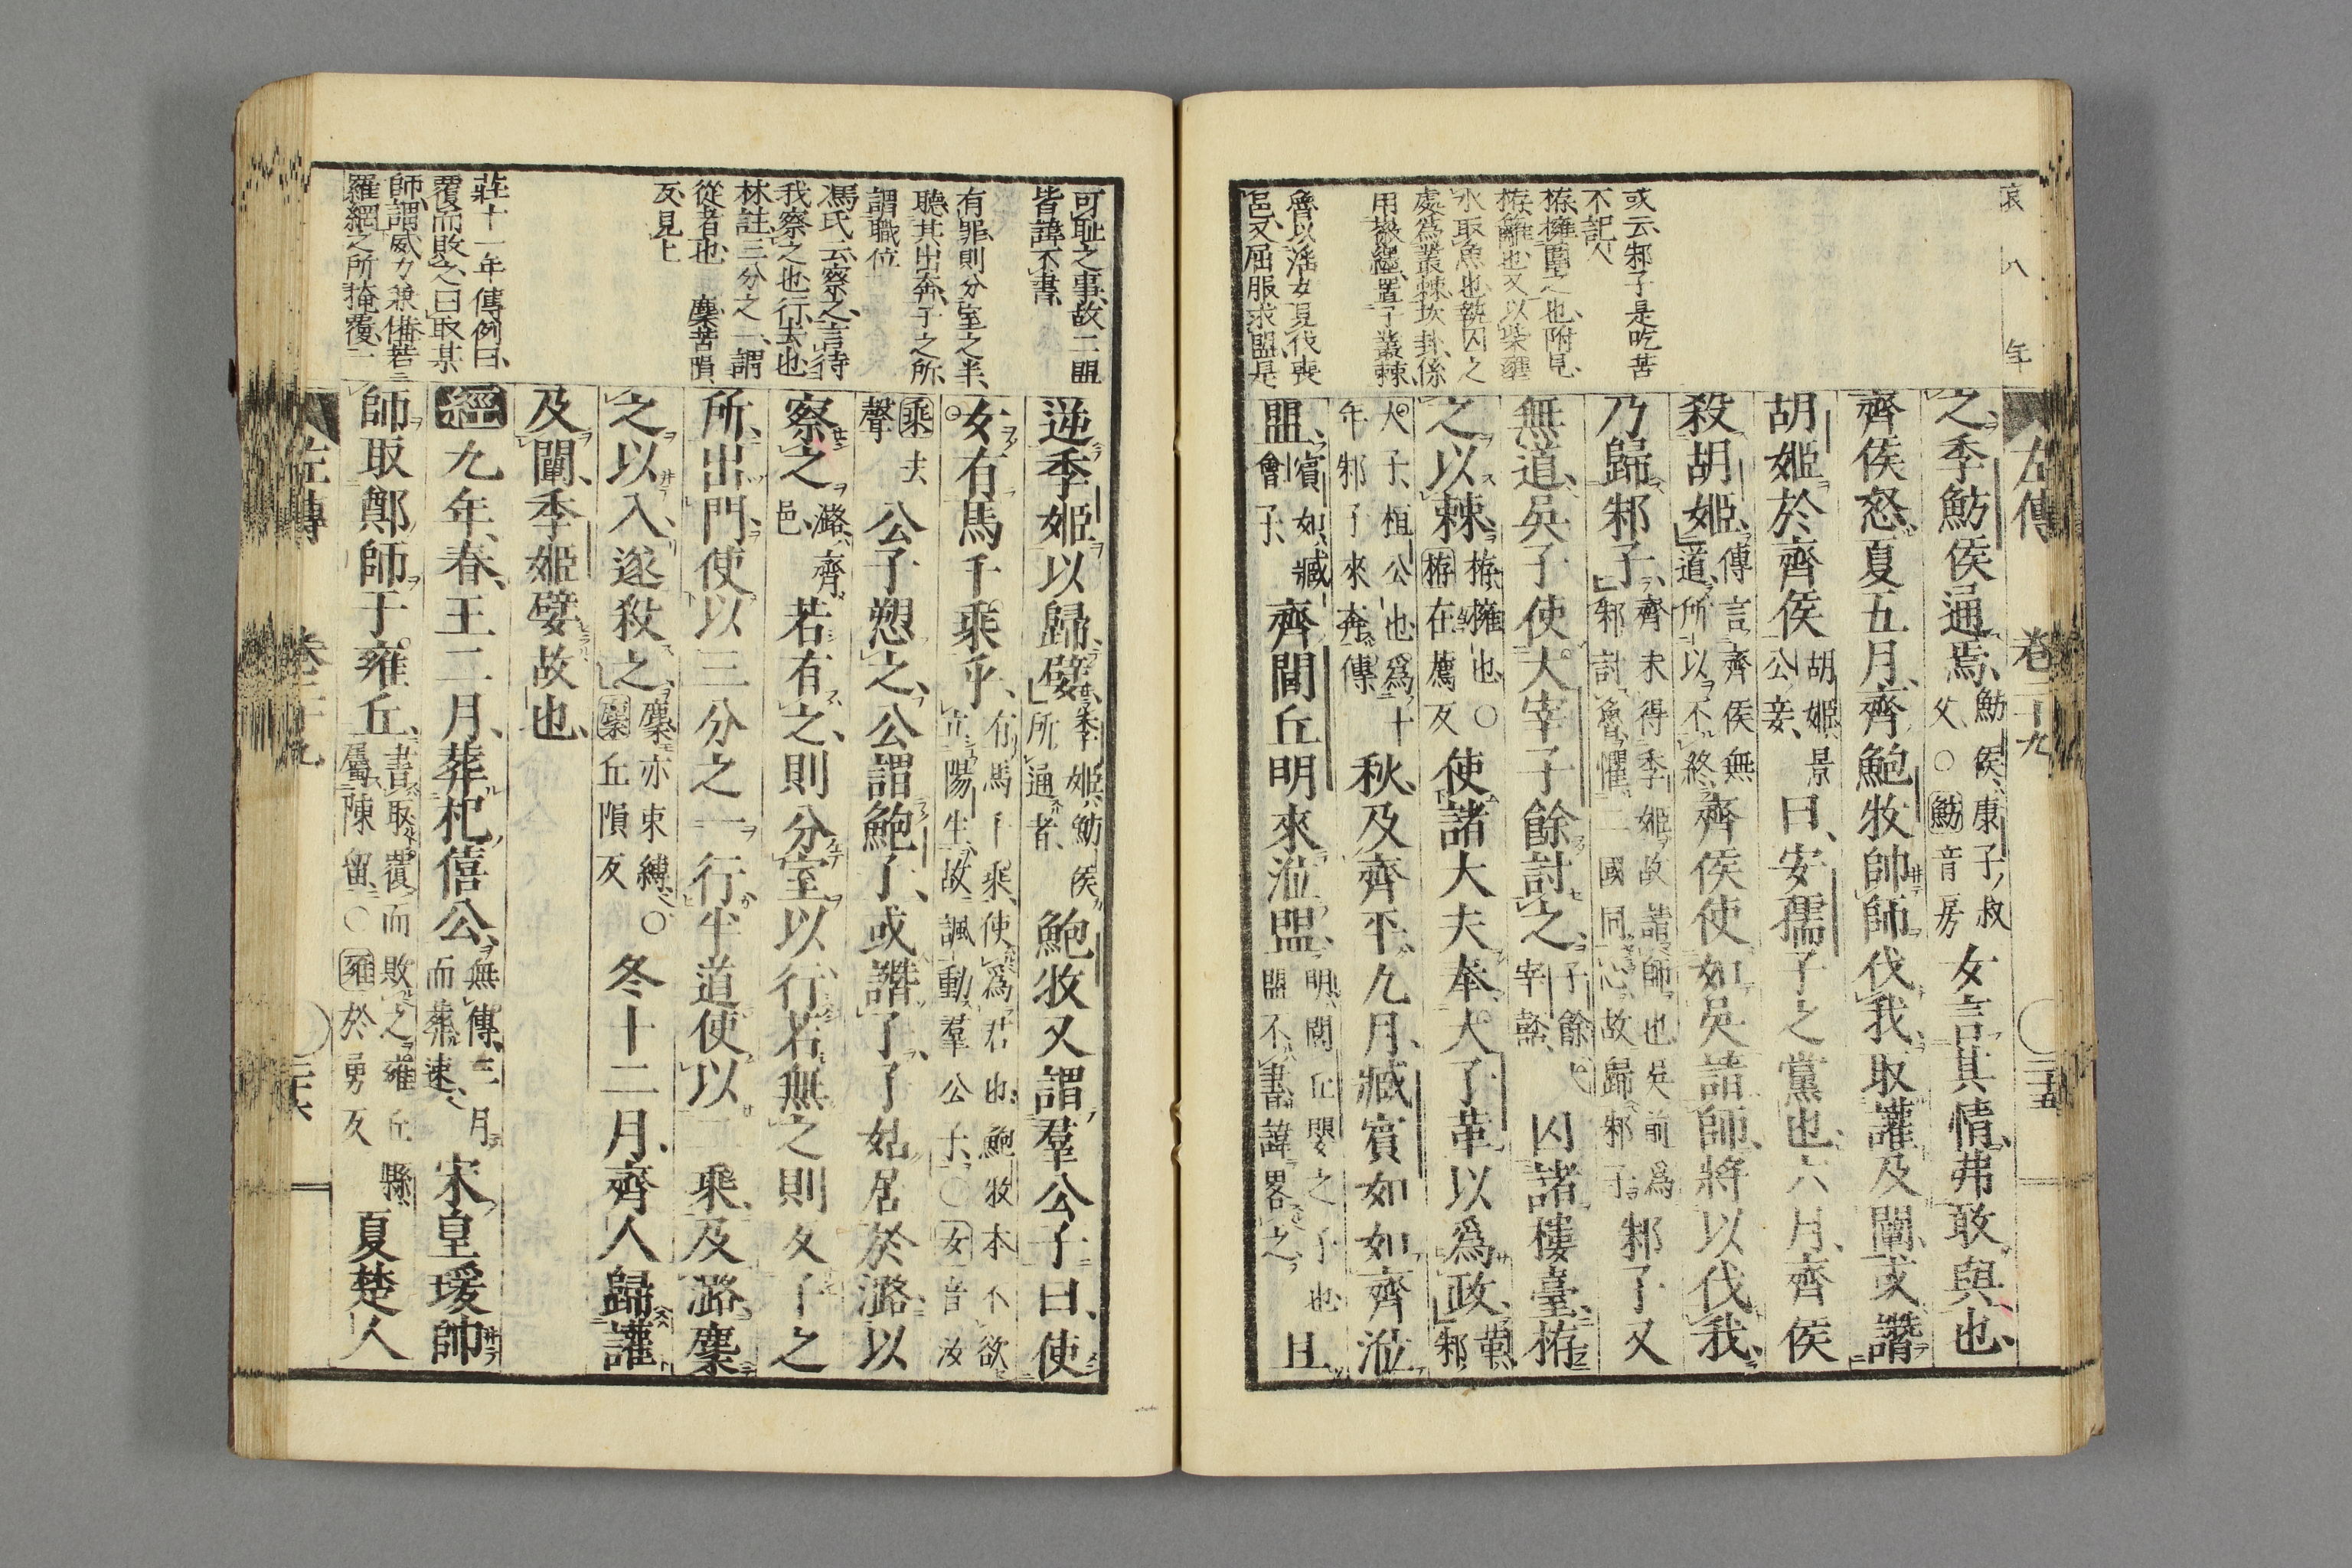 哀 八 年
左傳 卷二十九 二十五
或云邾子是吃苦
不記人
栫擁圍之也附見
栫籬也又以柴壅
水取魚也執囚之
處爲叢棘坎卦係
用徽纆寘于叢棘
魯以淫女見伐喪
邑又屈服求盟是
之季魴侯通焉魴侯康子叔父○魴音房女言其情弗敢與也
齊侯怒夏五月齊鮑牧帥師伐我取讙及闡或譖
胡姬於齊侯胡姬景公妾曰安孺子之黨也六月齊侯
殺胡姬傳言齊侯無道所以不終齊侯使如吳請師將以伐我
乃歸邾子齊未得季姬故請師也吳前爲邾討魯懼二國同心故歸邾子邾子又
無道吳子使大宰子餘討之子餘宰嚭囚諸樓臺栫
之以棘栫擁也○栫在薦反使諸大夫奉大子革以爲政革邾
大子桓公也爲十年邾子來奔傳秋及齊平九月臧賓如如齊涖
盟賓如臧會子齊閭丘明來涖盟明閭丘嬰之子也盟不書諱畧之且
可耻之事故二盟
皆諱不書
有罪則分室之半
聽其出奔于之所
謂職位
馮氏云察之言待
我察之也行去也
林註三分之一謂
從者也 麇苦隕
反見上
莊十一年傳例曰
覆而敗之曰取某
師謂威力兼備若
羅網之所掩覆一
逆季姬以歸嬖季姬魴侯所通者鮑牧又謂羣公子曰使
女有馬千乘乎有馬千乘使爲君也鮑牧本不欲立陽生故諷動羣公子○女音汝
乘去聲公子愬之公謂鮑子或譖子子姑居於潞以
察之潞齊邑若有之則分室以行若無之則反子之
所出門使以三分之一行半道使以二乘及潞麇
之以入遂殺之麇亦束縛○麇丘隕反冬十二月齊人歸讙
及闡季姬嬖故也
經九年春王二月葬杞僖公無傳三月而葬速宋皇瑗帥
師取鄭師于雍丘書取覆而敗之雍丘縣屬陳留○雍於勇反夏楚人
左傳 卷二十九 二十六